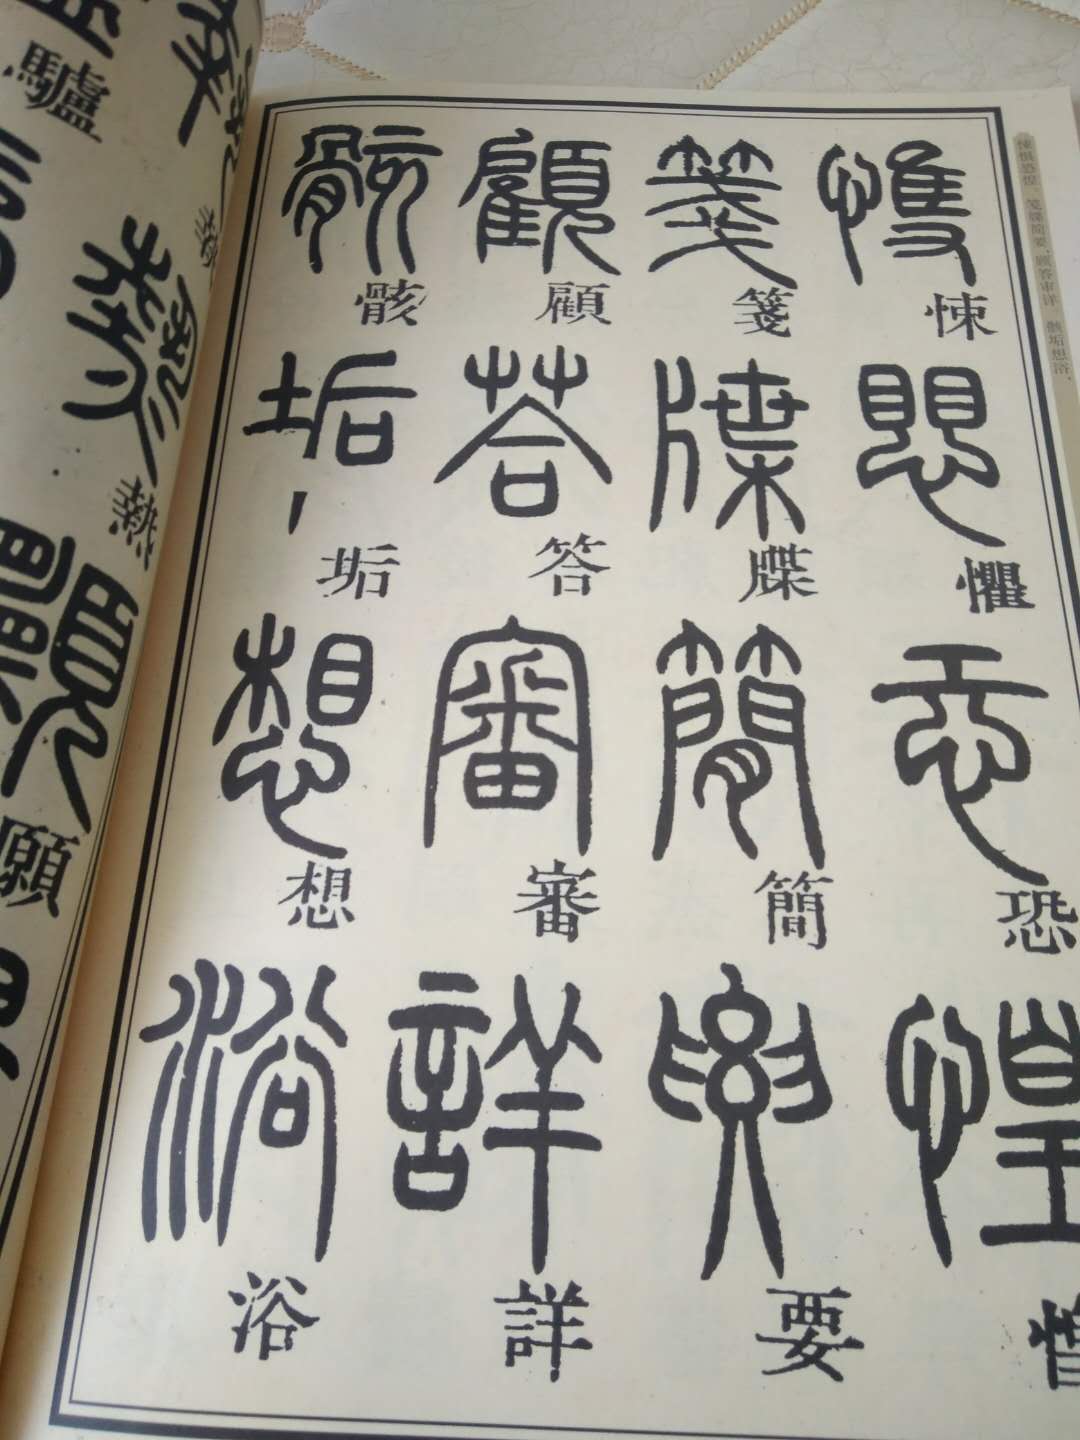 悚懼恐惶，笺牒简要，顾答审详，骸垢想浴，
悚
懼
恐
惶
箋
牒
簡
要
顧
答
審
詳
骸
垢
想
浴
驢
熱
願